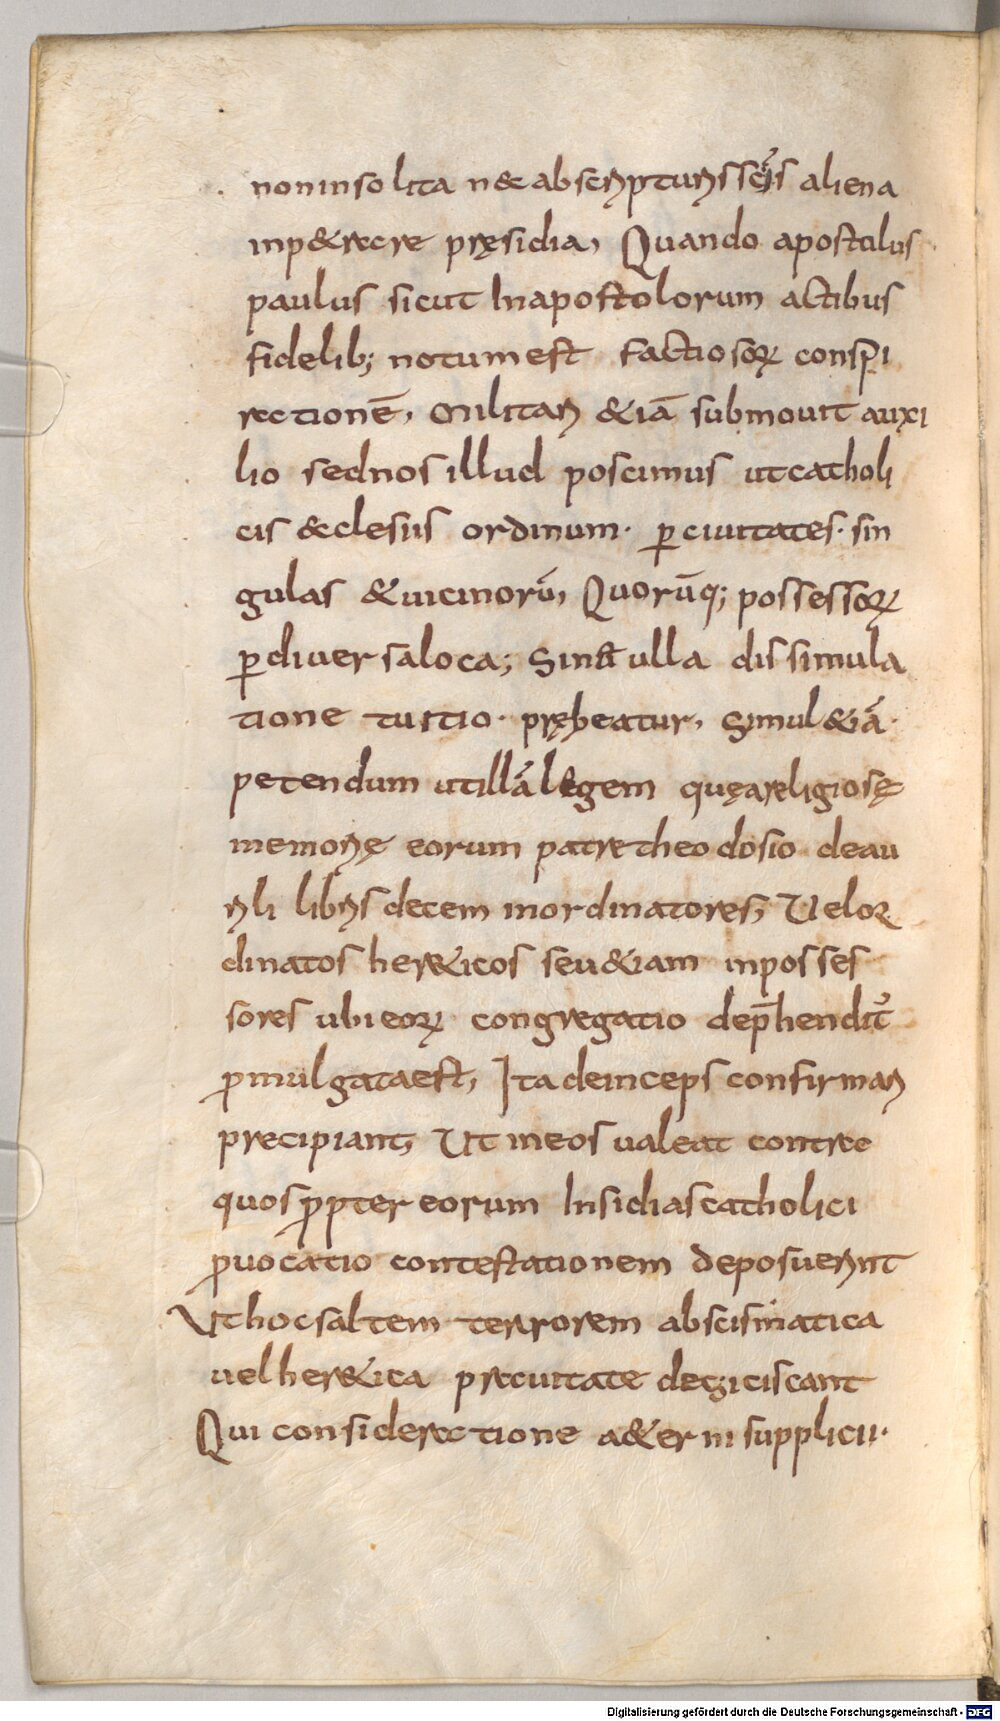 noninsolita n&abscripturissc̄is aliena
inp&rare pręsidia, Quando apostulus
paulus sicut Inapostolorum actibus
fidelib; notumest factiosoꝝ conspi
rationē, militari &iā submouit auxi
lio sednos illud poscimus utcatholi
cis &clesiis ordinum· ꝑciuitates· sin
gulas &uicinorū, Quorūq; possessoꝝ
ꝑdiuersaloca; Sinæ ulla dissimula
tione tuitio· prębeatur, Simul&iā·
petendum utillālegem quęareligiosę
memorię eorum patretheodosio deau
rili librisdecem inordinatores, Uelor
dinatos her&icos seu&iam inposses
sores ubieoꝝ congregatio dep̄henditᷣ
ꝓmulgataest, Itadeinceps confirmari
precipiant, Ut ineos ualeat contra
quosꝓpter eorum Insidiascatholici
ꝓuocatio contestationem deposuerint
Uthocsaltem terrorem abscismatica
uelher&ica prauitate degiciscant
Qui consideratione a&erni supplicii·
Digitalisierung gefördert durch die Deutsche Forschungsgemeinschaft - DFG